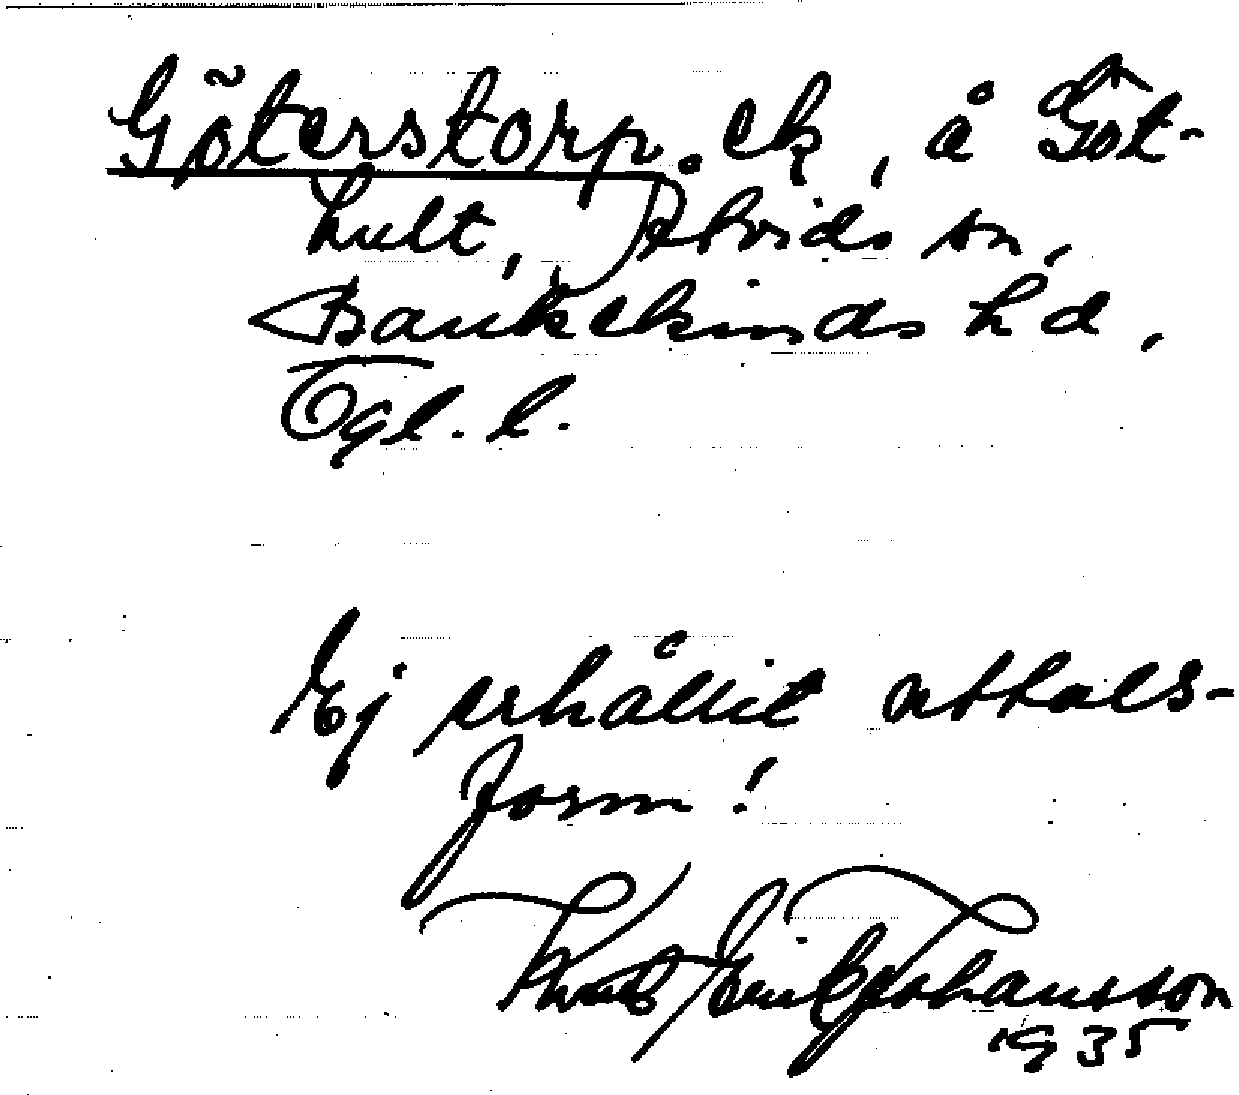 Göterstorp. ek, å Göt-
hult, Åtvids sn,
Bankekinds hd,
Ögl. l.
Ej erhållit uttals-
form!
Knut Erik Johansson
1935